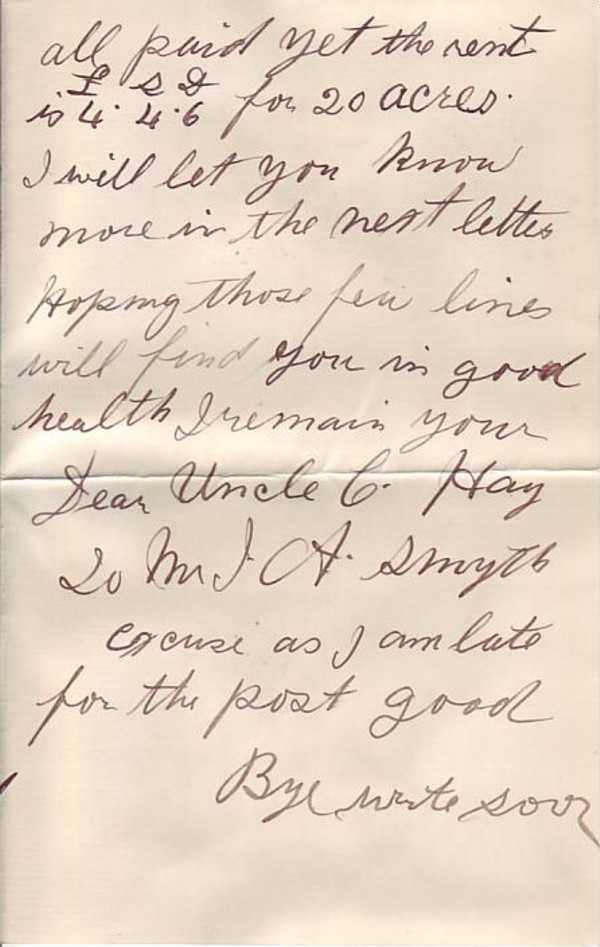 all paid yet the rent
£ S D
is 4. 4.6 for 20 acres.
I will let you know
more in the next letter
Hoping those few lines
will find you in good
health I remain your
Dear Uncle C. Hay
To Mr J. A. Smyth
excuse as I am late
for the post good
Bye write soon